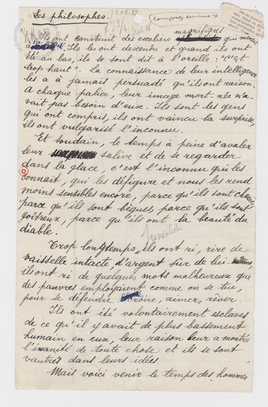 Les philosophes.
magnifiques
ont construit des escaliers qui
ils les ont descendu et quand ils ont
été au bas, ils se sont dit à l'oreille : "C'est
trop haut". La connaissance de leur intelligence
les a à jamais persuadé qu'ils ont raison.
A chaque palier, leur image mort-née n'a-
vait pas besoin d'eux. Ils sont les gens
qui ont compris, ils ont vaincu la surprise
ils ont vulgarisé l'inconnu.
Et soudain, le temps à peine d'avaler
leur salive et de se regarder
dans la glace, c'est l'inconnu qui les
connaît, qui les défigure et nous les rend
moins sensibles encore, parce qu'ils sont
parce qu'ils sont bègues, parce qu'ils sont
goitreux, parce qu'ils ont la beauté du
diable.
Trop longtemps, ils ont ri, rire de
vaisselle intacte d'argent sûr de lui
ils ont ri de quelques mots malheureux que
des pauvres employaient comme on se tue,
pour se défendre, croire, aimer, rêver.
Ils ont été volontairement esclaves
de ce qu'il y avait de plus bassement
humain en eux, leur raison leur a montré
l'inanité de toute chose et ils se sont
vautrés dans leurs idées.
Mais voici venir le temps des hommes